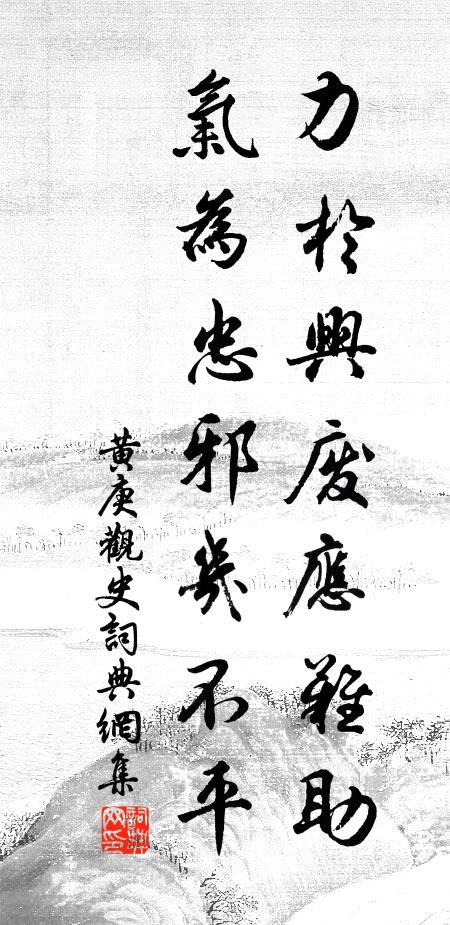 力於興廢應難助
氣為忠邪幾不平
黃庚觀史詞典網集